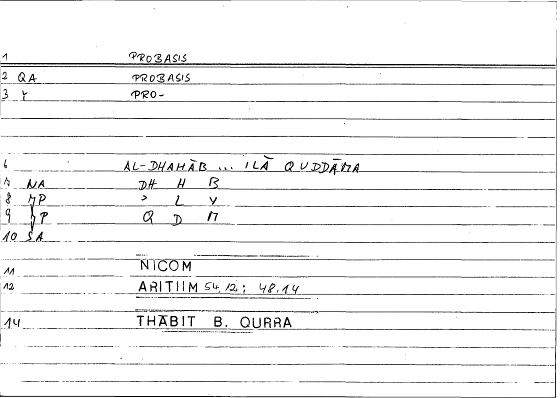 1 PROBASIS
2 QA PROBASIS
3 Y PRO-
6 AL-DHAHĀB ... ILĀ QUDDĀMA
7 NA DH H B
8 MP ᾿ L Y
9 MP Q D M
10 SA
11 NICOM
12 ARITIIM 54,12; 48.14
14 THĀBIT B. QURRA